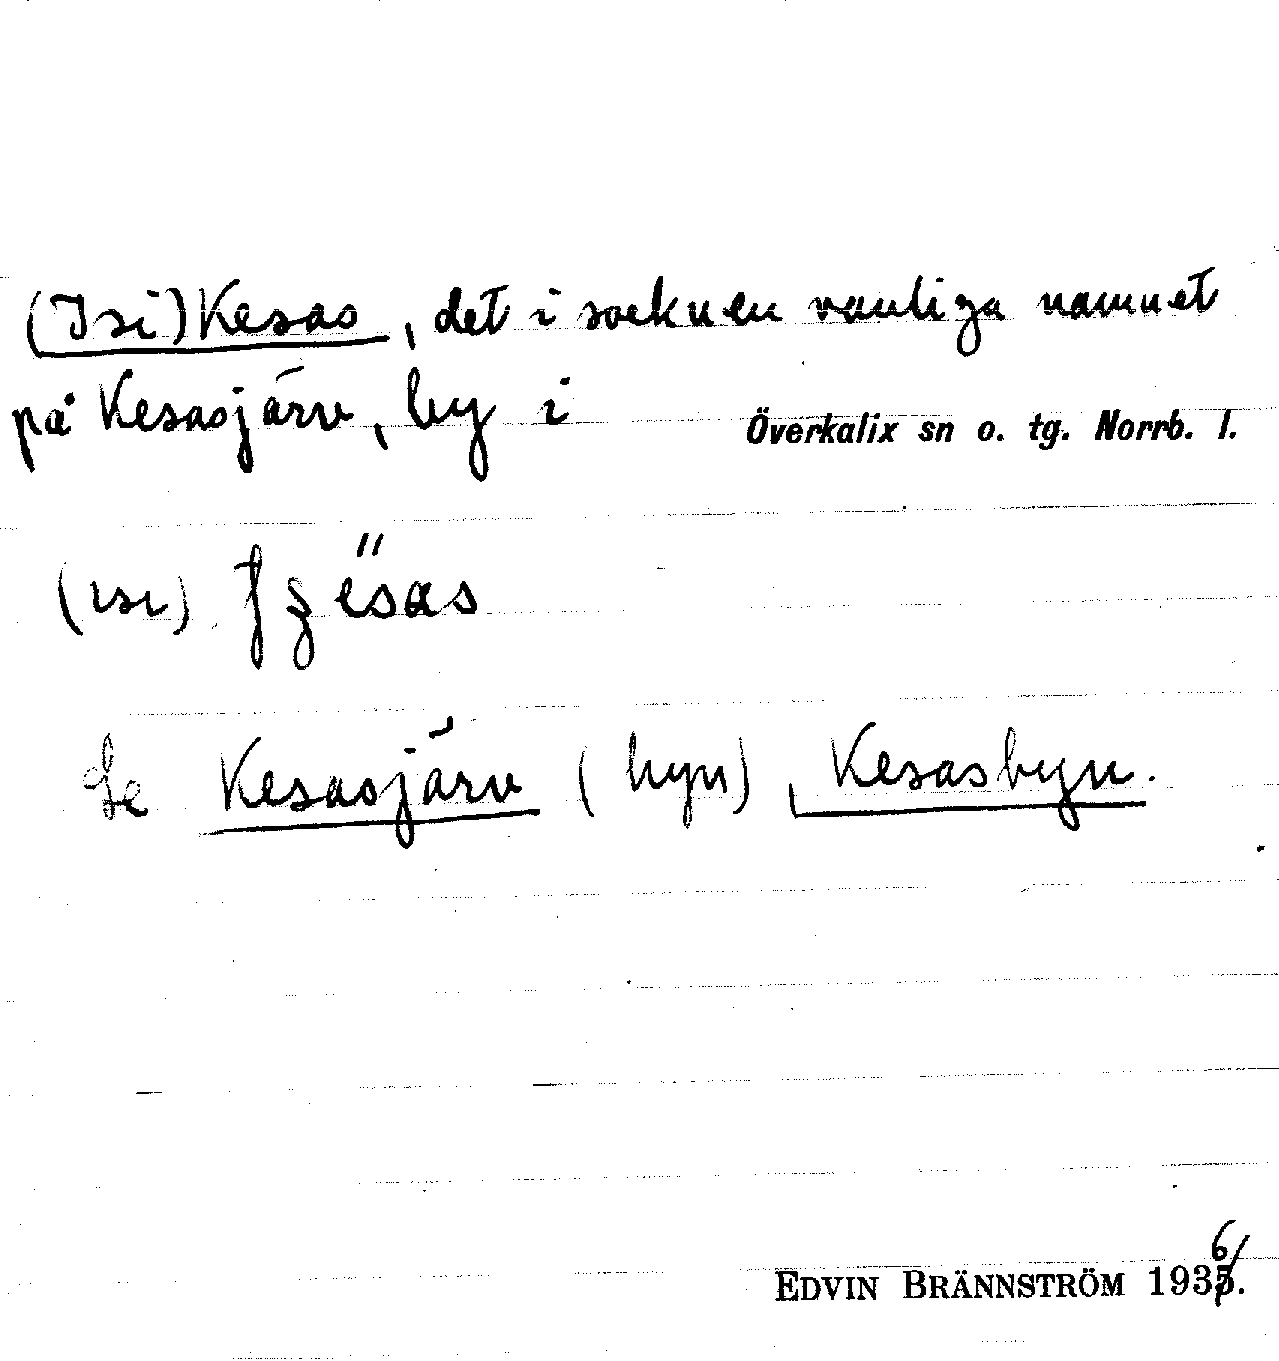 (Isi)Kesas, det i socknen vanliga namnet
på Kesasjärv, by i Överkalix sn o. tg. Norrb. l.
(ısı)
Se Kesasjärv (byn), Kesasbyn.
EDVIN BRÄNNSTRÖM 1936.